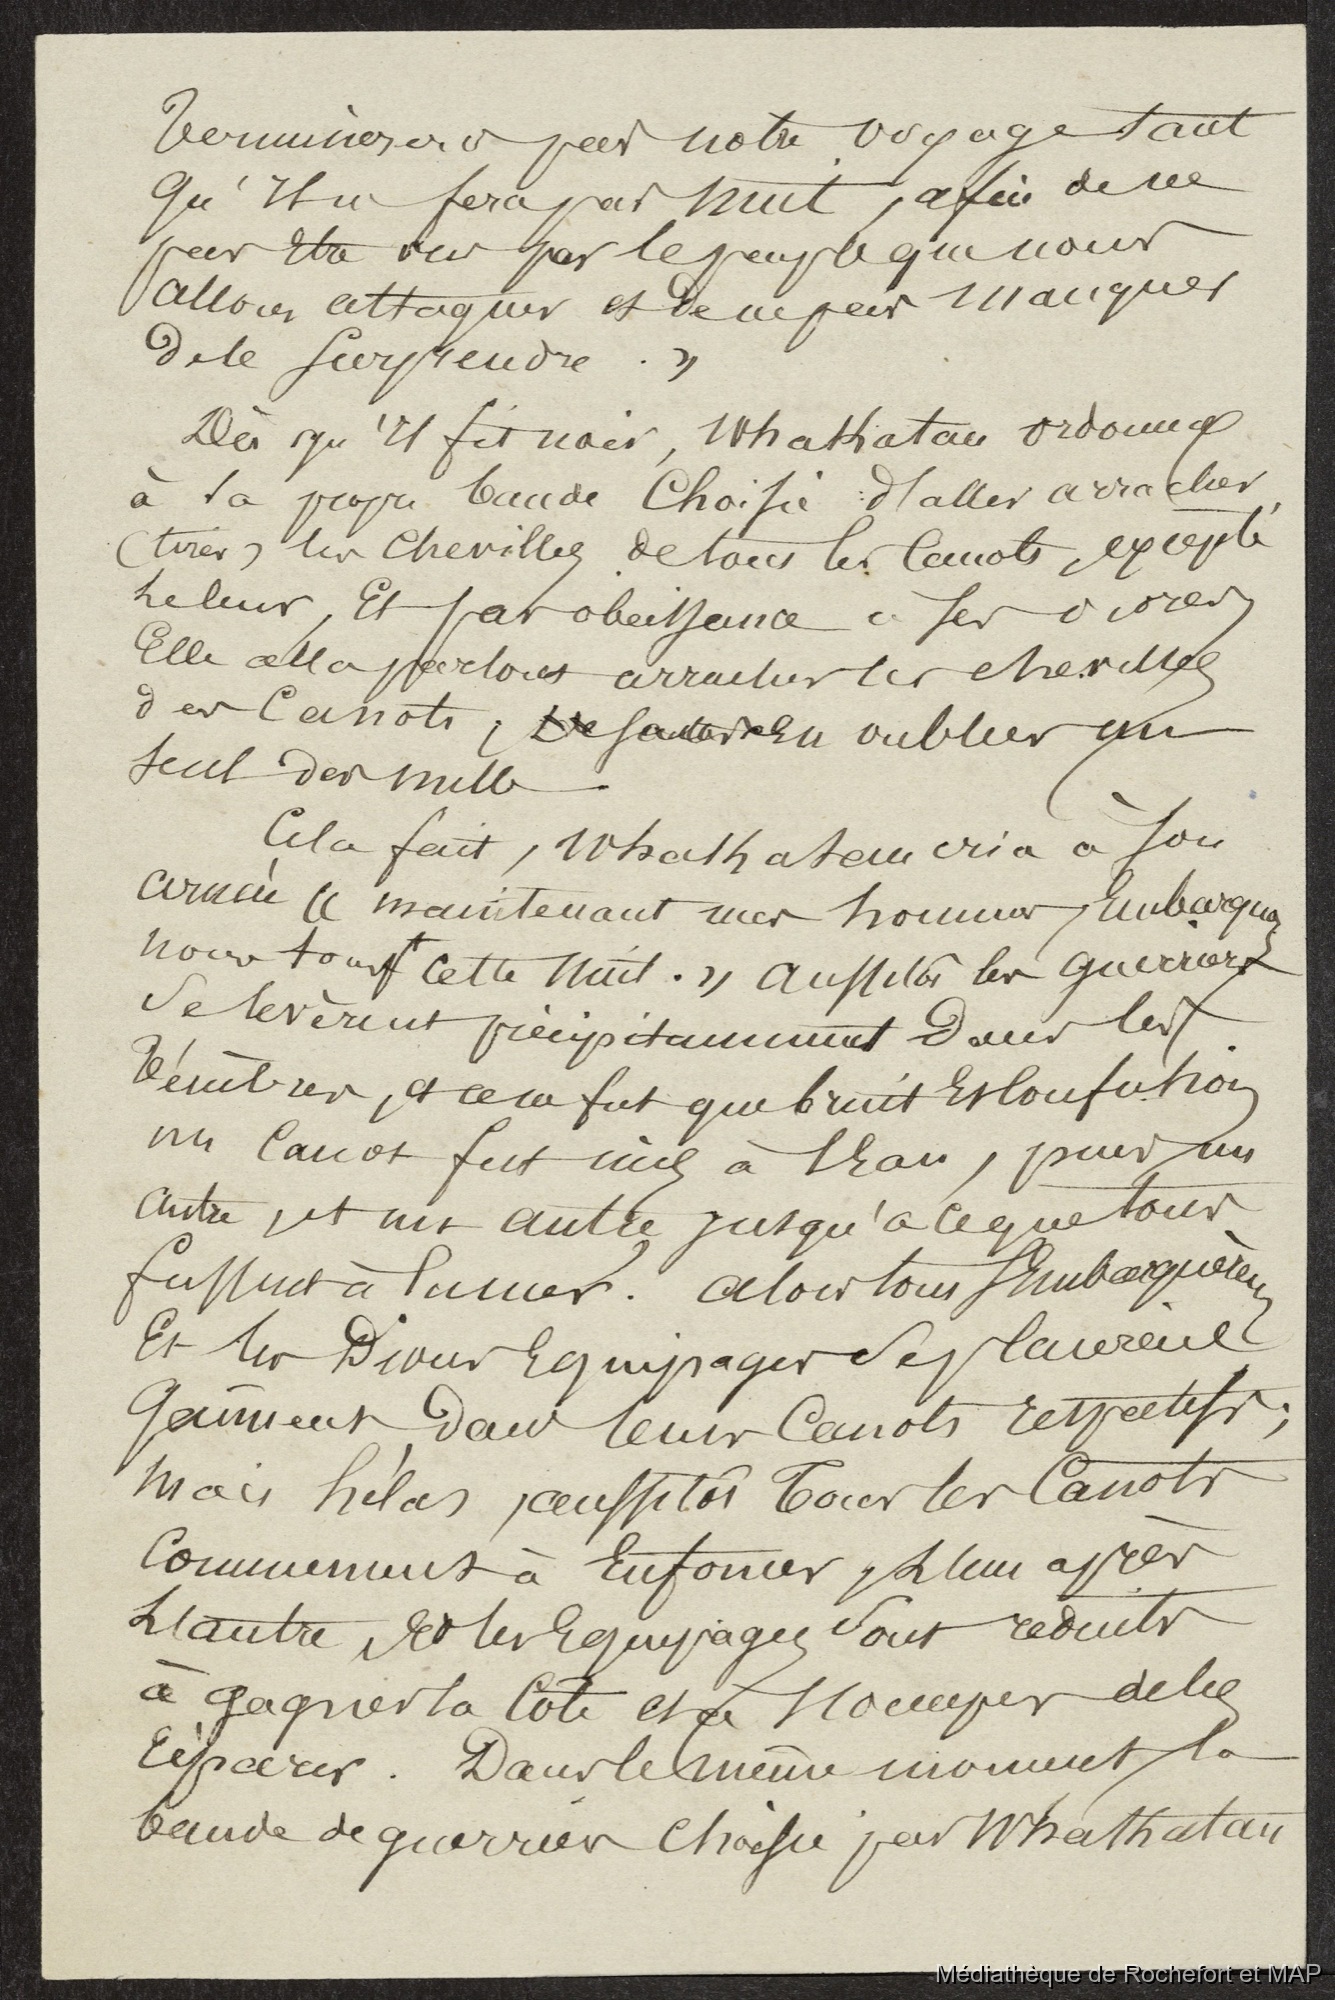 terminerons pas notre voyage tant
qu'il ne fera pas nuit, afin de ne
pas être vus par le peuple que nous
allons attaquer et de ne pas manquer
de le surprendre. »
Dès qu'il fit noir, Whathatau ordonna
à sa propre bande choisie d'aller arracher
(tirer) les chevilles de tous les canots, excepté
le leur, Et par obeissance à ses ordres
Elle alla partout arracher les chevilles
des Canots, sans En oublier un
seul des mille.
Cela fait, Whathatau cria à son
armée « maintenant mes hommes, Embarquez
nous tous cette nuit. » Aussitôt les guerriers
se levèrent précipitamment dans les
ténèbres, et ce ne fut que bruit Et Confusion
un Canot fut mis à l'Eau, puis un
autre, et un autre jusqu'à ce que tous
fussent à la mer. Alors tous s'Embarquèrent
Et les Divers Equipages se placèrent
gaîment dans leurs Canots respectifs;
mais hélas, aussitôt Tous les Canots
Commencent à Enfoncer, L'un après
L'autre, Et les Equipages sont réduits
à gagner la Côte et à s'occuper de les
réparer. Dans le même moment la
bande de guerriers Choisie par Whathatau
Médiathèque de Rochefort et MAP